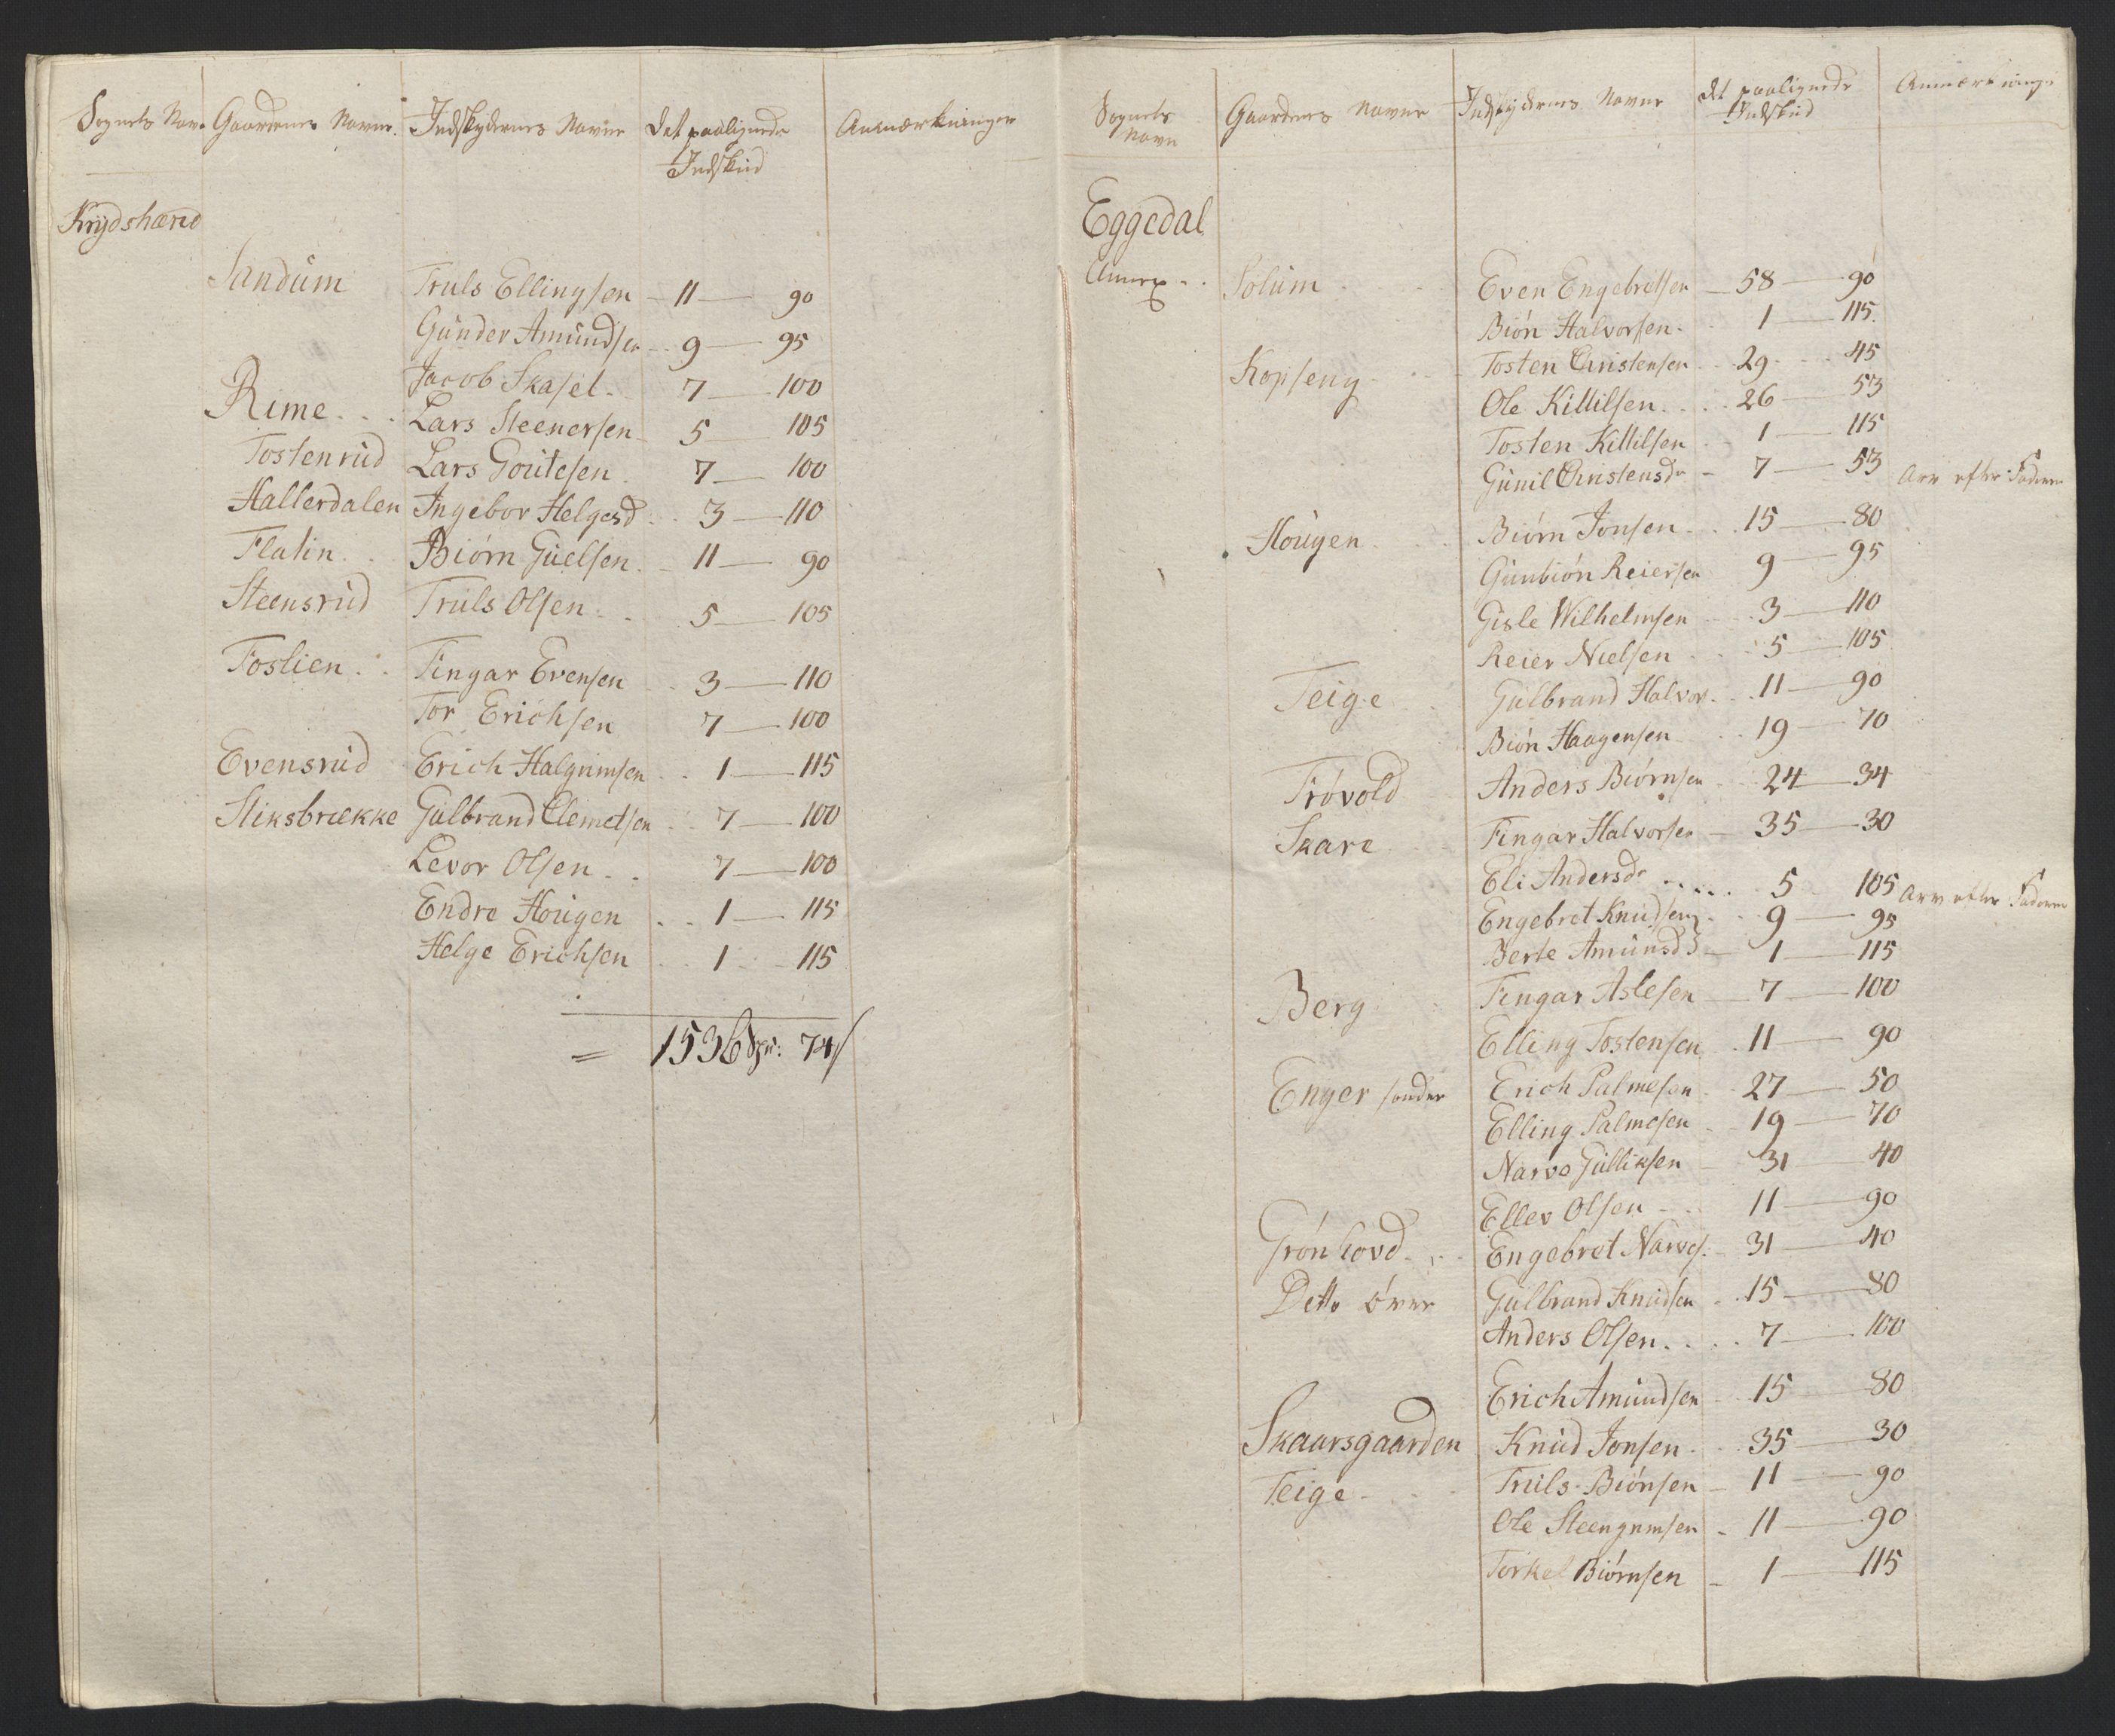 Sognets Navn Gaardenes Navne. Indskydernes Navne Det paalignede Indskud Anmærkninger
Krydsherred
Sandum Truls Ellingsen - 11 - 90
Gunder Amundsen - 9 - 95
Jacob Skasel. 7 - 100
Rime . . . Lars Steenersen - 5 - 105
Tostenrud Lars Goutesen. 7 - 100
Hallerdalen Ingebor Helgesd . . 3 - 110
Flatin . . Biørn Guelsen. - 11 - 90
Steensrud Truls Olsen . . 5 - 105
Foslien . . Fingar Evensen . . 3 - 110
Tor Erichsen 7 - 100
Evensrud Erich Halgrimsen . . 1 - 115
Sliksbrække Gulbrand Clemetsen . . 7 - 100
Levor Olsen . . 7 - 100
Endre Hougen . . 1 - 115
Helge Erichsen . . 1 - 115
= 1536 Spd: 74 s
Sognets Navn Gaardenes Navne Indskydernes Navne Det paalignede Indskud Anmærkninge
Eggedal
Annex . . Solum . . Even Engebretsen - 58 - 90
Biøn Halvorsen . 1 - 115.
Kopseng . . Tosten Christensen . . 29 . . 45
Ole Kittilsen . . . 26 - 53
Tosten Kittilsen - 1 - 115
Gunil Christensdr - 7 - 53 Arv efter Faderen
Hougen . . Biørn Jonsen . . 15 - 80
Gunbiøn Reiersen 9 - 95
Gisle Wilhelmsen . . 3 - 110
Reier Nielsen . . 5 - 105
Teige . . Gulbrand Halvor. . 11 - 90
Biøn Haagensen . . 19 - 70
Trøvold Anders Biørnsen . . 24 - 34
Skare . . Fingar Halvorsen - 35 - 30
Eli Andersdr . . . . . 5 105 Arv efter Faderen
Engebret Knudsen . . 9 - 95
Berte Amunsd - 1 - 115
Berg Fingar Aslesen - 7 - 100
Elling Tostensen . 11 - 90
Enger sønder Erich Palmesen . 27 - 50
Elling Palmesen . 19 - 70
Narvo Gulliksen - 31 - 40
Ellev Olsen - . . 11 - 90
Grønhovd . . . Engebret Narves. - 31 - 40
Ditto øver Gulbrand Knudsen . 15 - 80
Anders Olsen . . . 7 - 100
Erich Amundsen . . 15 80
Skaarsgaarden Knud Jonsen . . 35 - 30
Teige . . Truls Biønsen - 11 - 90
Ole Steengrimsen - 11 - 90
Torkel Biørnsen - 1 - 115